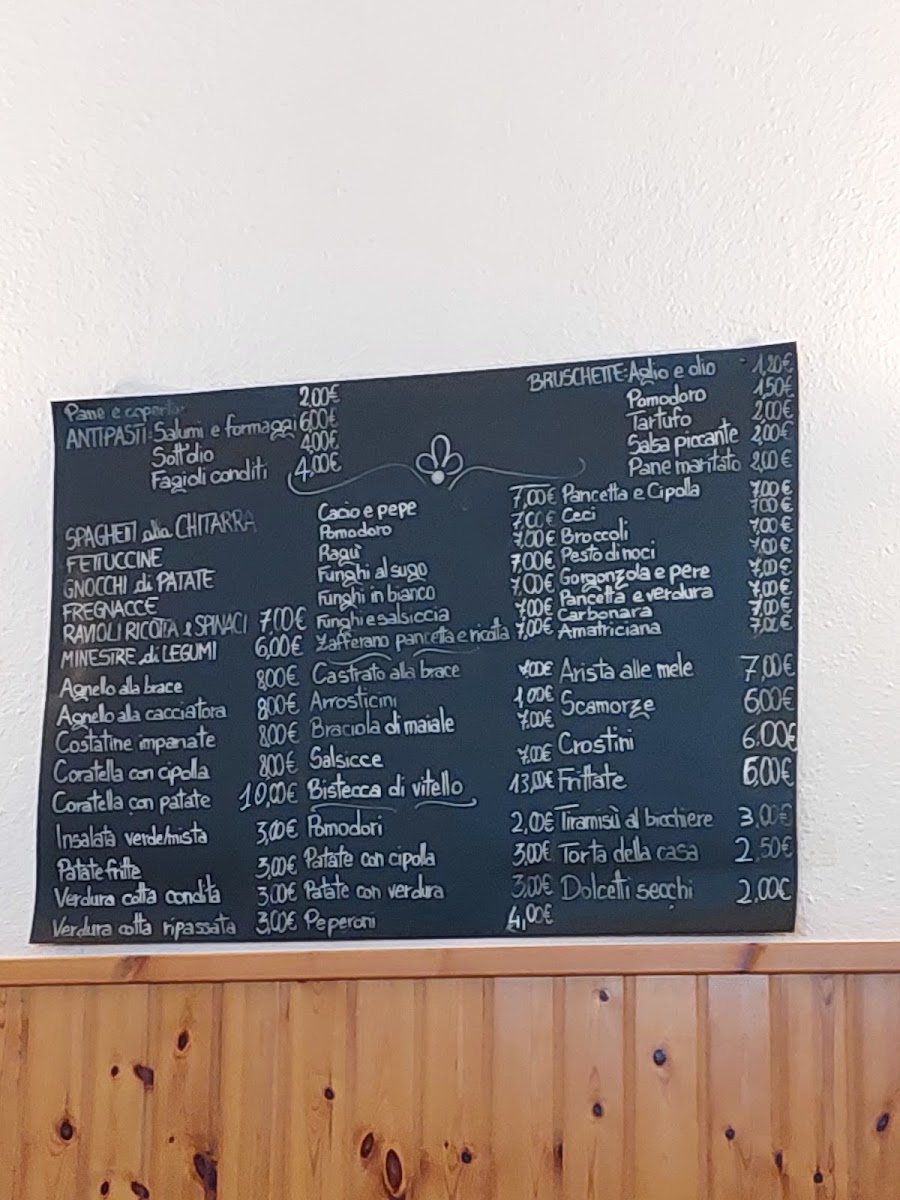 Pane e coperto 2,00€
ANTIPASTI: Salumi e formaggi 6,00€
Sott'olio 4,00€
Fagioli conditi 4,00€
BRUSCHETTE: Aglio e olio 1,20€
Pomodoro 1,50€
Tartufo 2,00€
Salsa piccante 2,00€
Pane maritato 2,00€
SPAGHETTI alla CHITARRA
FETTUCCINE
GNOCCHI di PATATE
FREGNACCE
RAVIOLI RICOTTA e SPINACI 7,00€
MINESTRE di LEGUMI 6,00€
Cacio e pepe 7,00€
Pomodoro 7,00€
Ragù 7,00€
Funghi al sugo 7,00€
Funghi in bianco 7,00€
Funghi e salsiccia 7,00€
Zafferano pancetta e ricotta 7,00€
Pancetta e Cipolla 7,00€
Ceci 7,00€
Broccoli 7,00€
Pesto di noci 7,00€
Gorgonzola e pere 7,00€
Pancetta e verdura 7,00€
Carbonara 7,00€
Amatriciana 7,00€
Agnello alla brace 8,00€
Agnello alla cacciatora 8,00€
Costatine impanate 8,00€
Coratella con cipolla 8,00€
Coratella con patate 10,00€
Castrato alla brace
Arrosticini 1,00€
Braciola di maiale 7,00€
Salsicce 7,00€
Bistecca di vitello 13,00€
Arista alle mele 7,00€
Scamorze 6,00€
Crostini 6,00€
Frittate 6,00€
Insalata verde/mista 3,00€
Patate fritte 3,00€
Verdura cotta condita 3,00€
Verdura cotta ripassata 3,00€
Pomodori 2,00€
Patate con cipolla 3,00€
Patate con verdura 3,00€
Peperoni 4,00€
Tiramisù al bicchiere 3,00€
Torta della casa 2,50€
Dolcetti secchi 2,00€